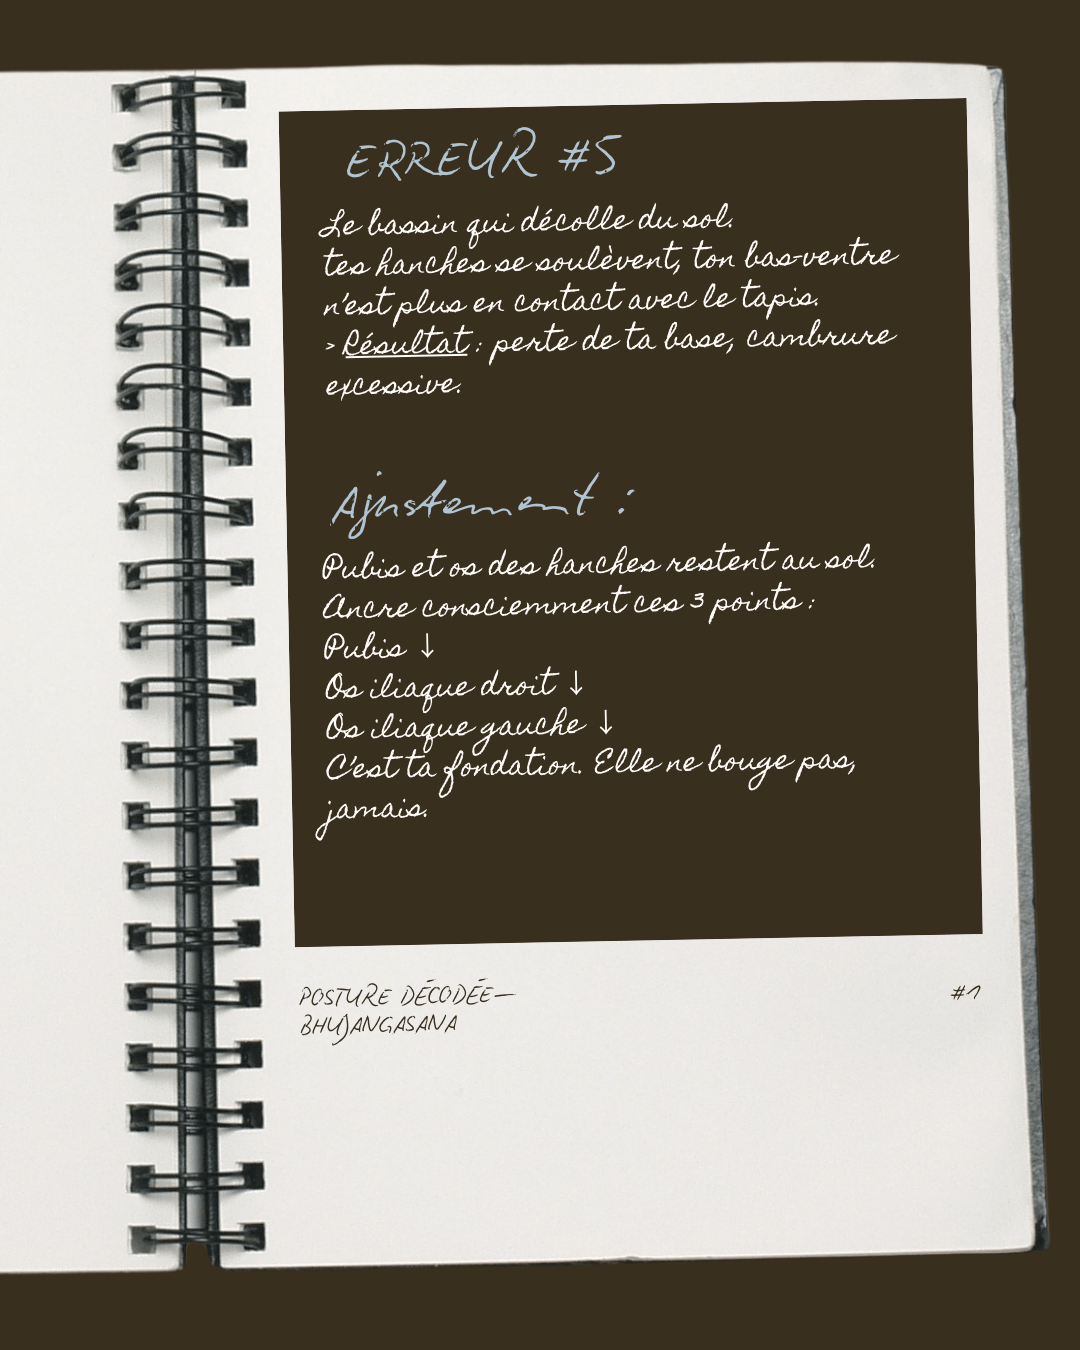 ERREUR #5
Le bassin qui décolle du sol.
tes hanches se soulèvent, ton bas-ventre
n'est plus en contact avec le tapis.
> Résultat : perte de ta base, cambrure
excessive.
Ajustement :
Pubis et os des hanches restent au sol.
Ancre consciemment ces 3 points :
Pubis ↓
Os iliaque droit ↓
Os iliaque gauche ↓
C'est ta fondation. Elle ne bouge pas,
jamais.
POSTURE DÉCODÉE—
BHUJANGASANA
#1